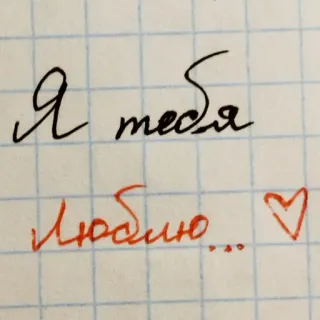 Я тебя
Люблю...♡